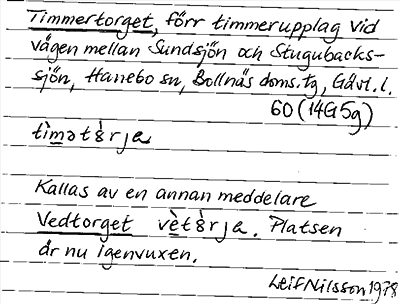 Timmertorget, förr timmerupplag vid
vägen mellan Sundsjön och Stugubacks-
sjön, Hanebo sn, Bollnäs doms.tg, Gävl.l.
60 (14G5g)
tìmət8̀rja
Kallas av en annan meddelare
Vedtorget vèt8̀rja. Platsen
är nu igenvuxen.
Leif Nilsson 1978